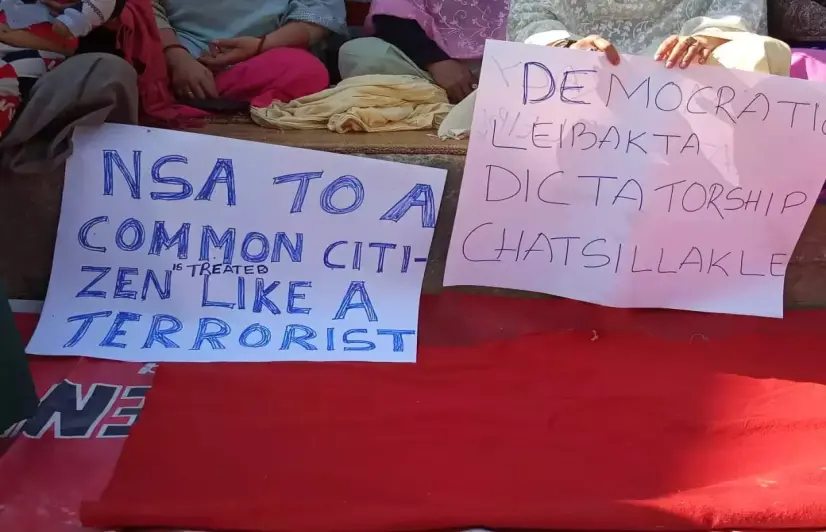 NSA TO A
COMMON CITI-
ZEN IS TREATED LIKE A
TERRORIST
DEMOCRATIC
LEIBAKTA
DICTATORSHIP
CHATSILLAKLE